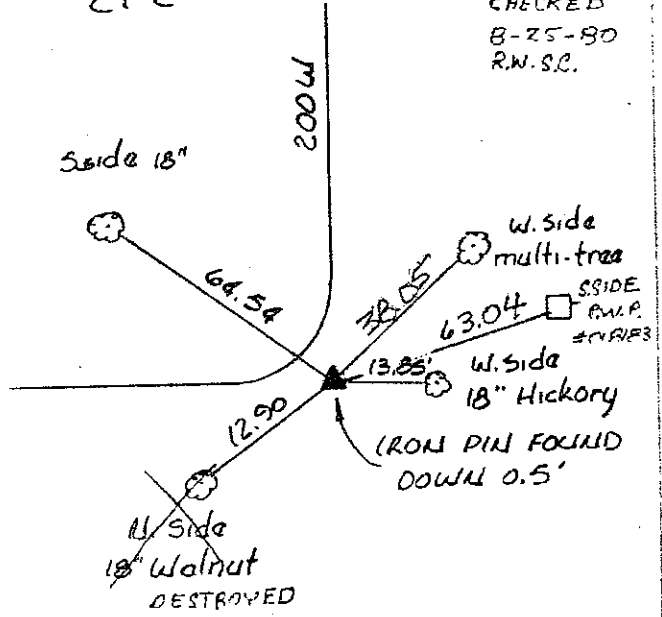 CHECKED
8-25-80
R.W.S.C.
200W
S.side 18"
W. Side
multi-tree
64.54
38.05'
63.04
S SIDE
P.W.P.
13.85'
W. Side
18" Hickory
12.90
IRON PIN FOUND
DOWN 0.5'
N. Side
18" Walnut
DESTROYED